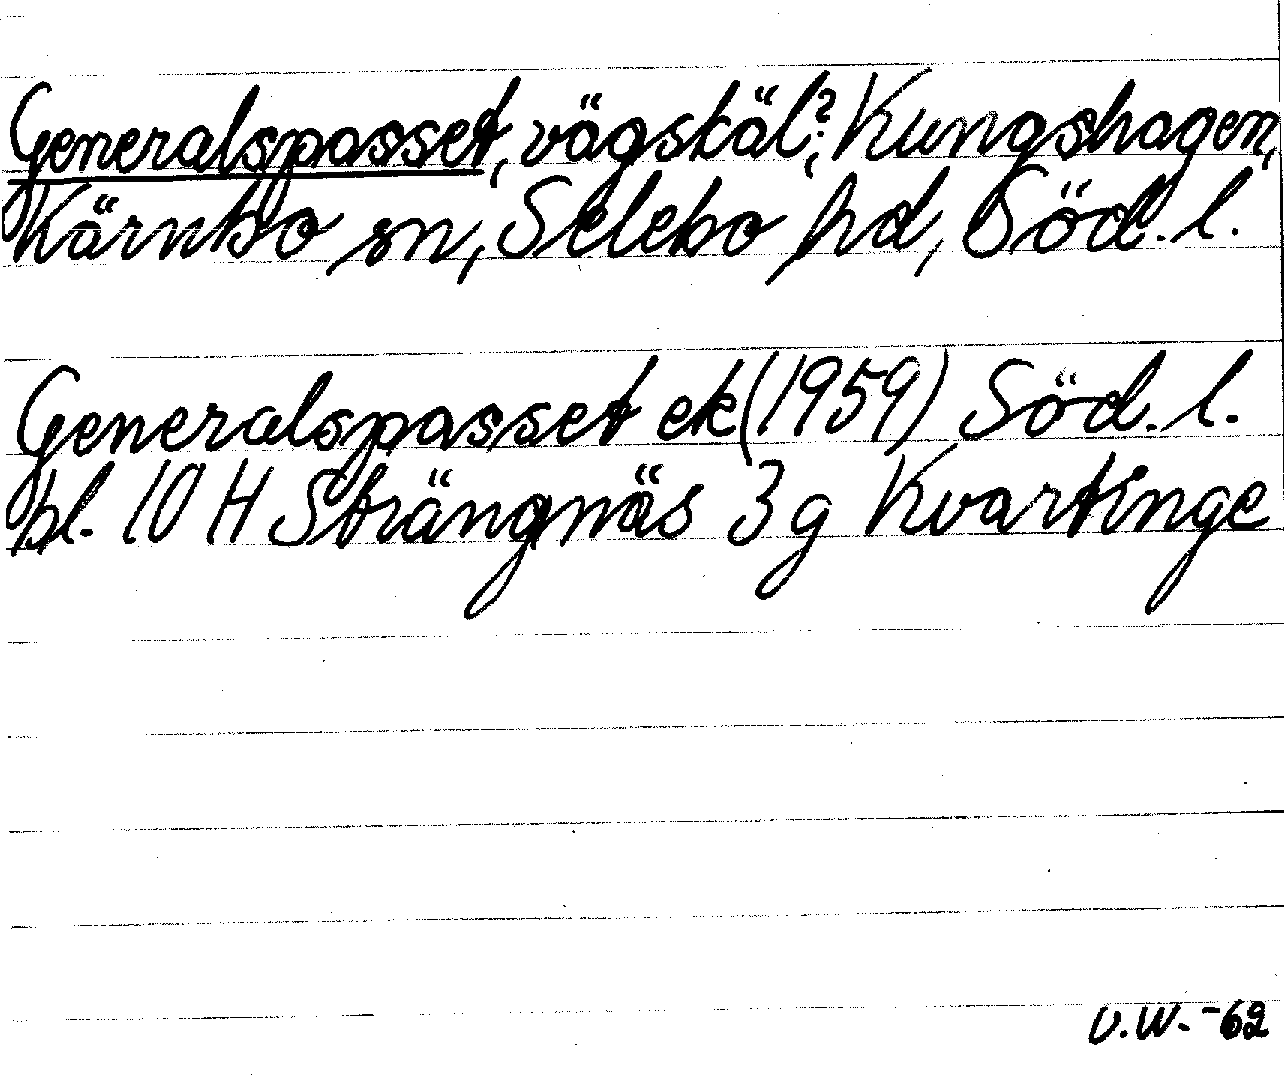 Generalspasset, vägskäl?, Kungshagen,
Kärnbo sn, Selebo hd, Söd. l.
Generalspasset ek (1959) Söd. l.
bl. 10 H Strängnäs 3 g Kvartinge
U.W. -62